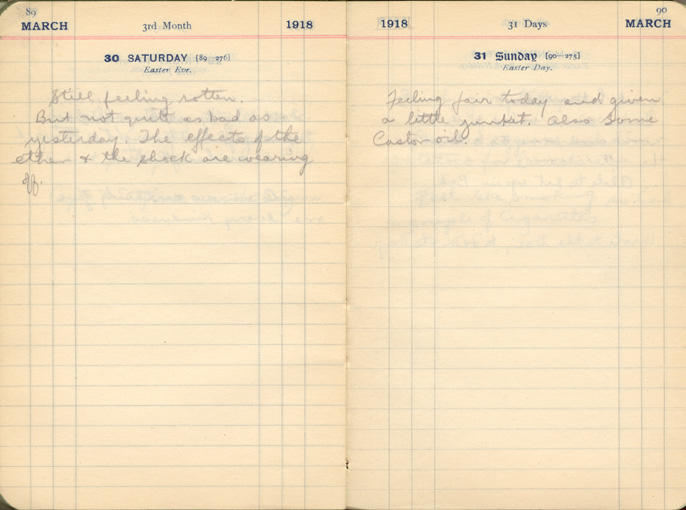 89
MARCH 3rd Month 1918
30 SATURDAY [89-276]
Easter Eve.
Still feeling rotten.
But not quite as bad as
yesterday. The effects of the
ether & the shock are wearing
off.
90
1918 31 Days MARCH
31 Sunday [90-275]
Easter Day.
Feeling fair today and given
a little junket. Also some
Castor oil.